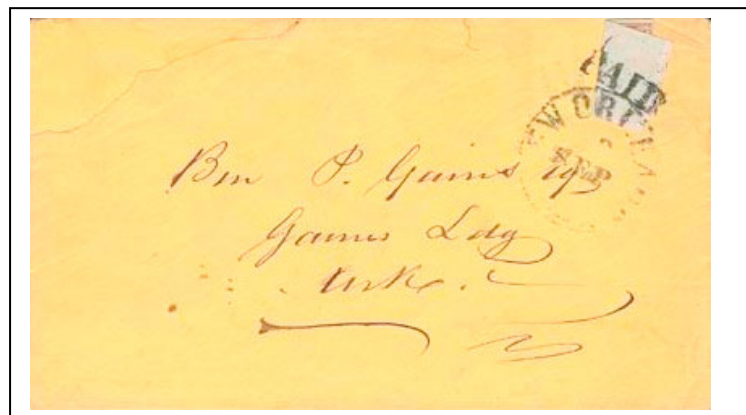 PAID
W ORLEANS
SEP
Ben P. Gaines Esq
Gaines Ldg
Arks.